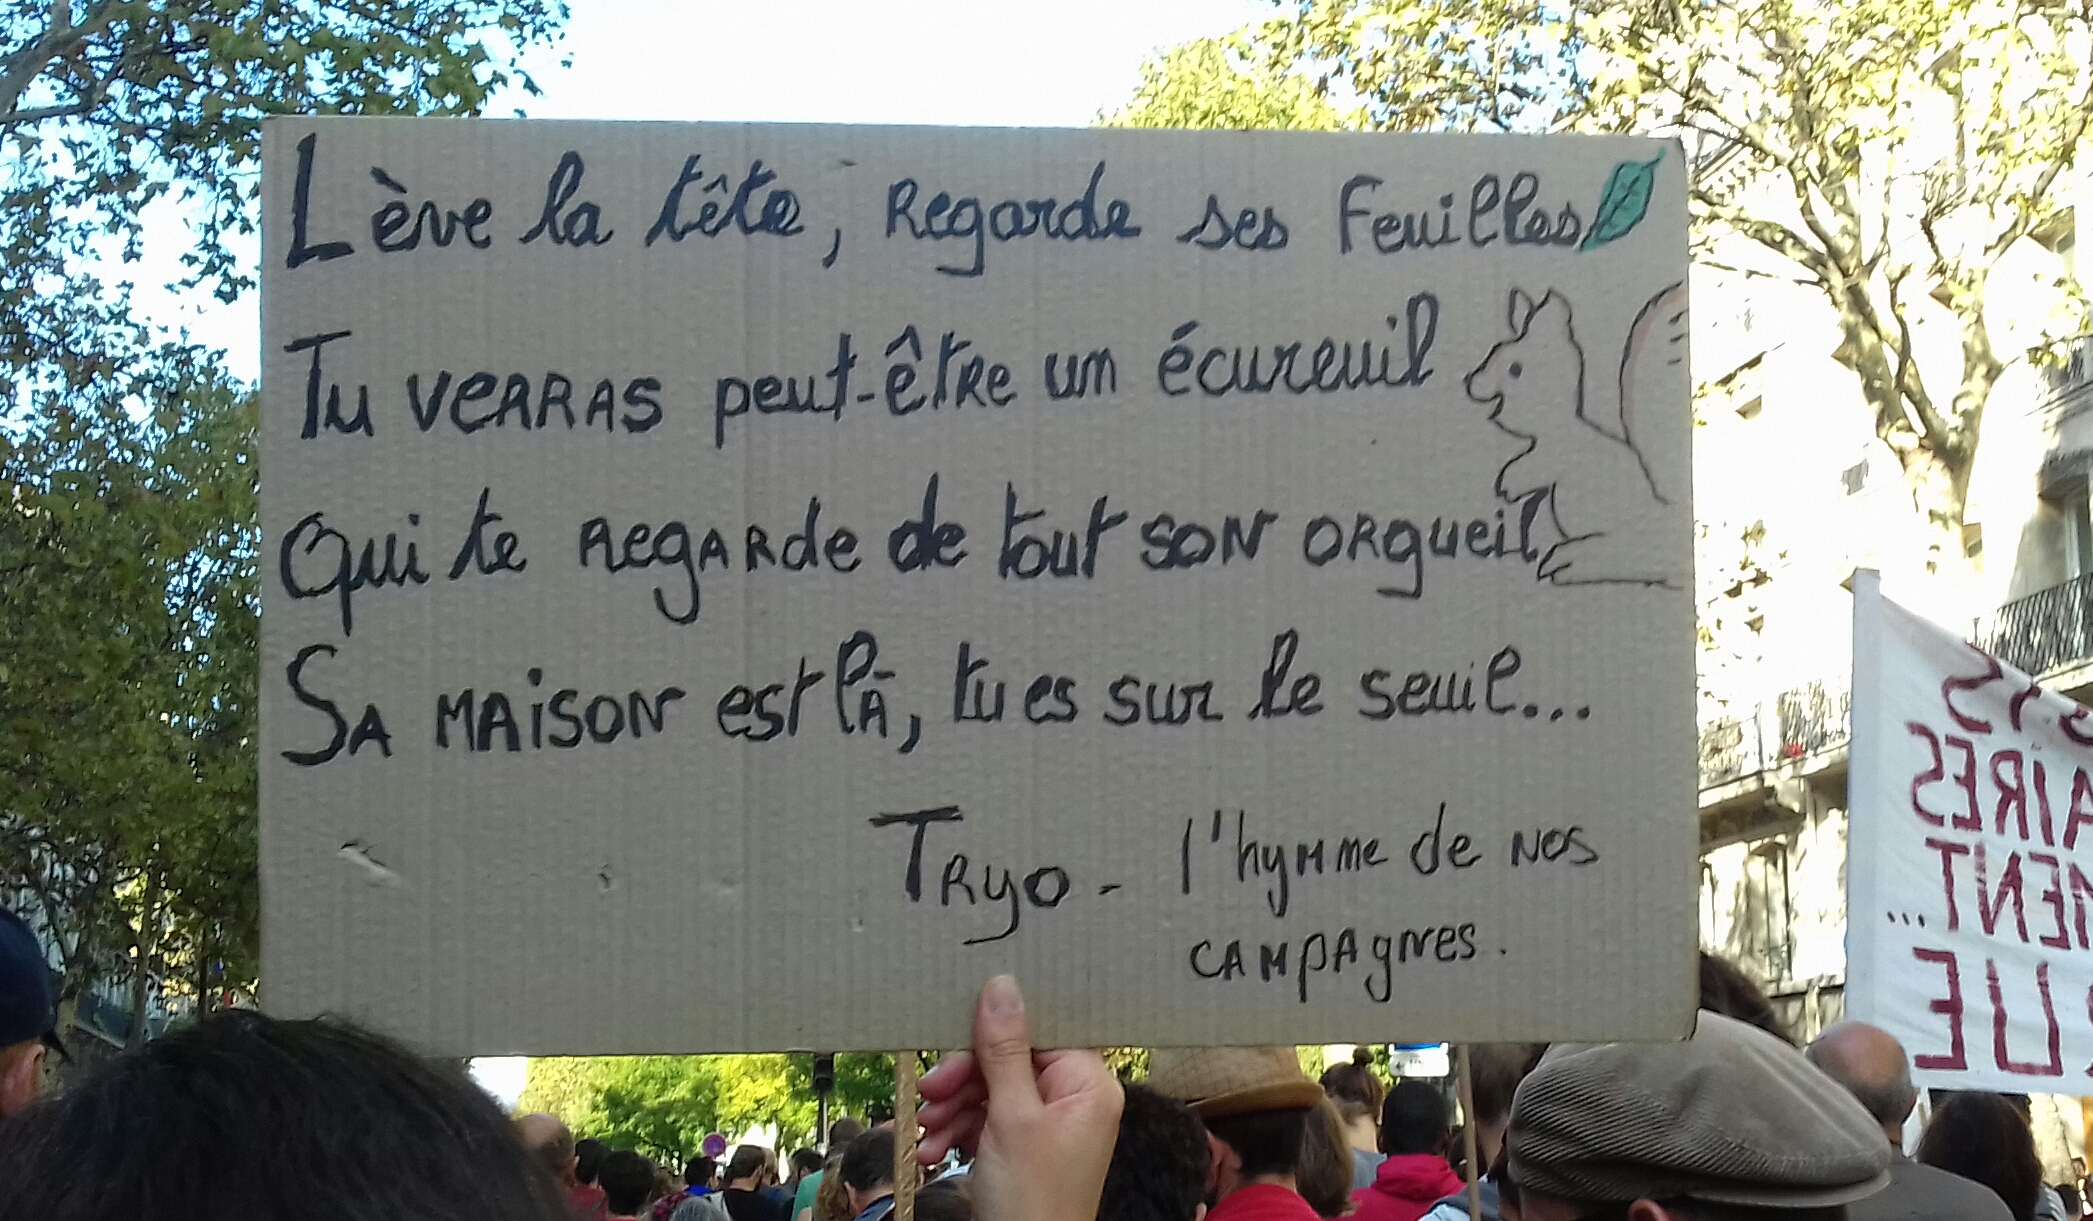 Lève la tête, Regarde ses Feuilles
Tu verras peut-être un écureuil
Qui te regarde de tout son orgueil
Sa maison est là, tu es sur le seuil...
Tryo - l'hymne de nos
campagnes.
AIRES
MENT...